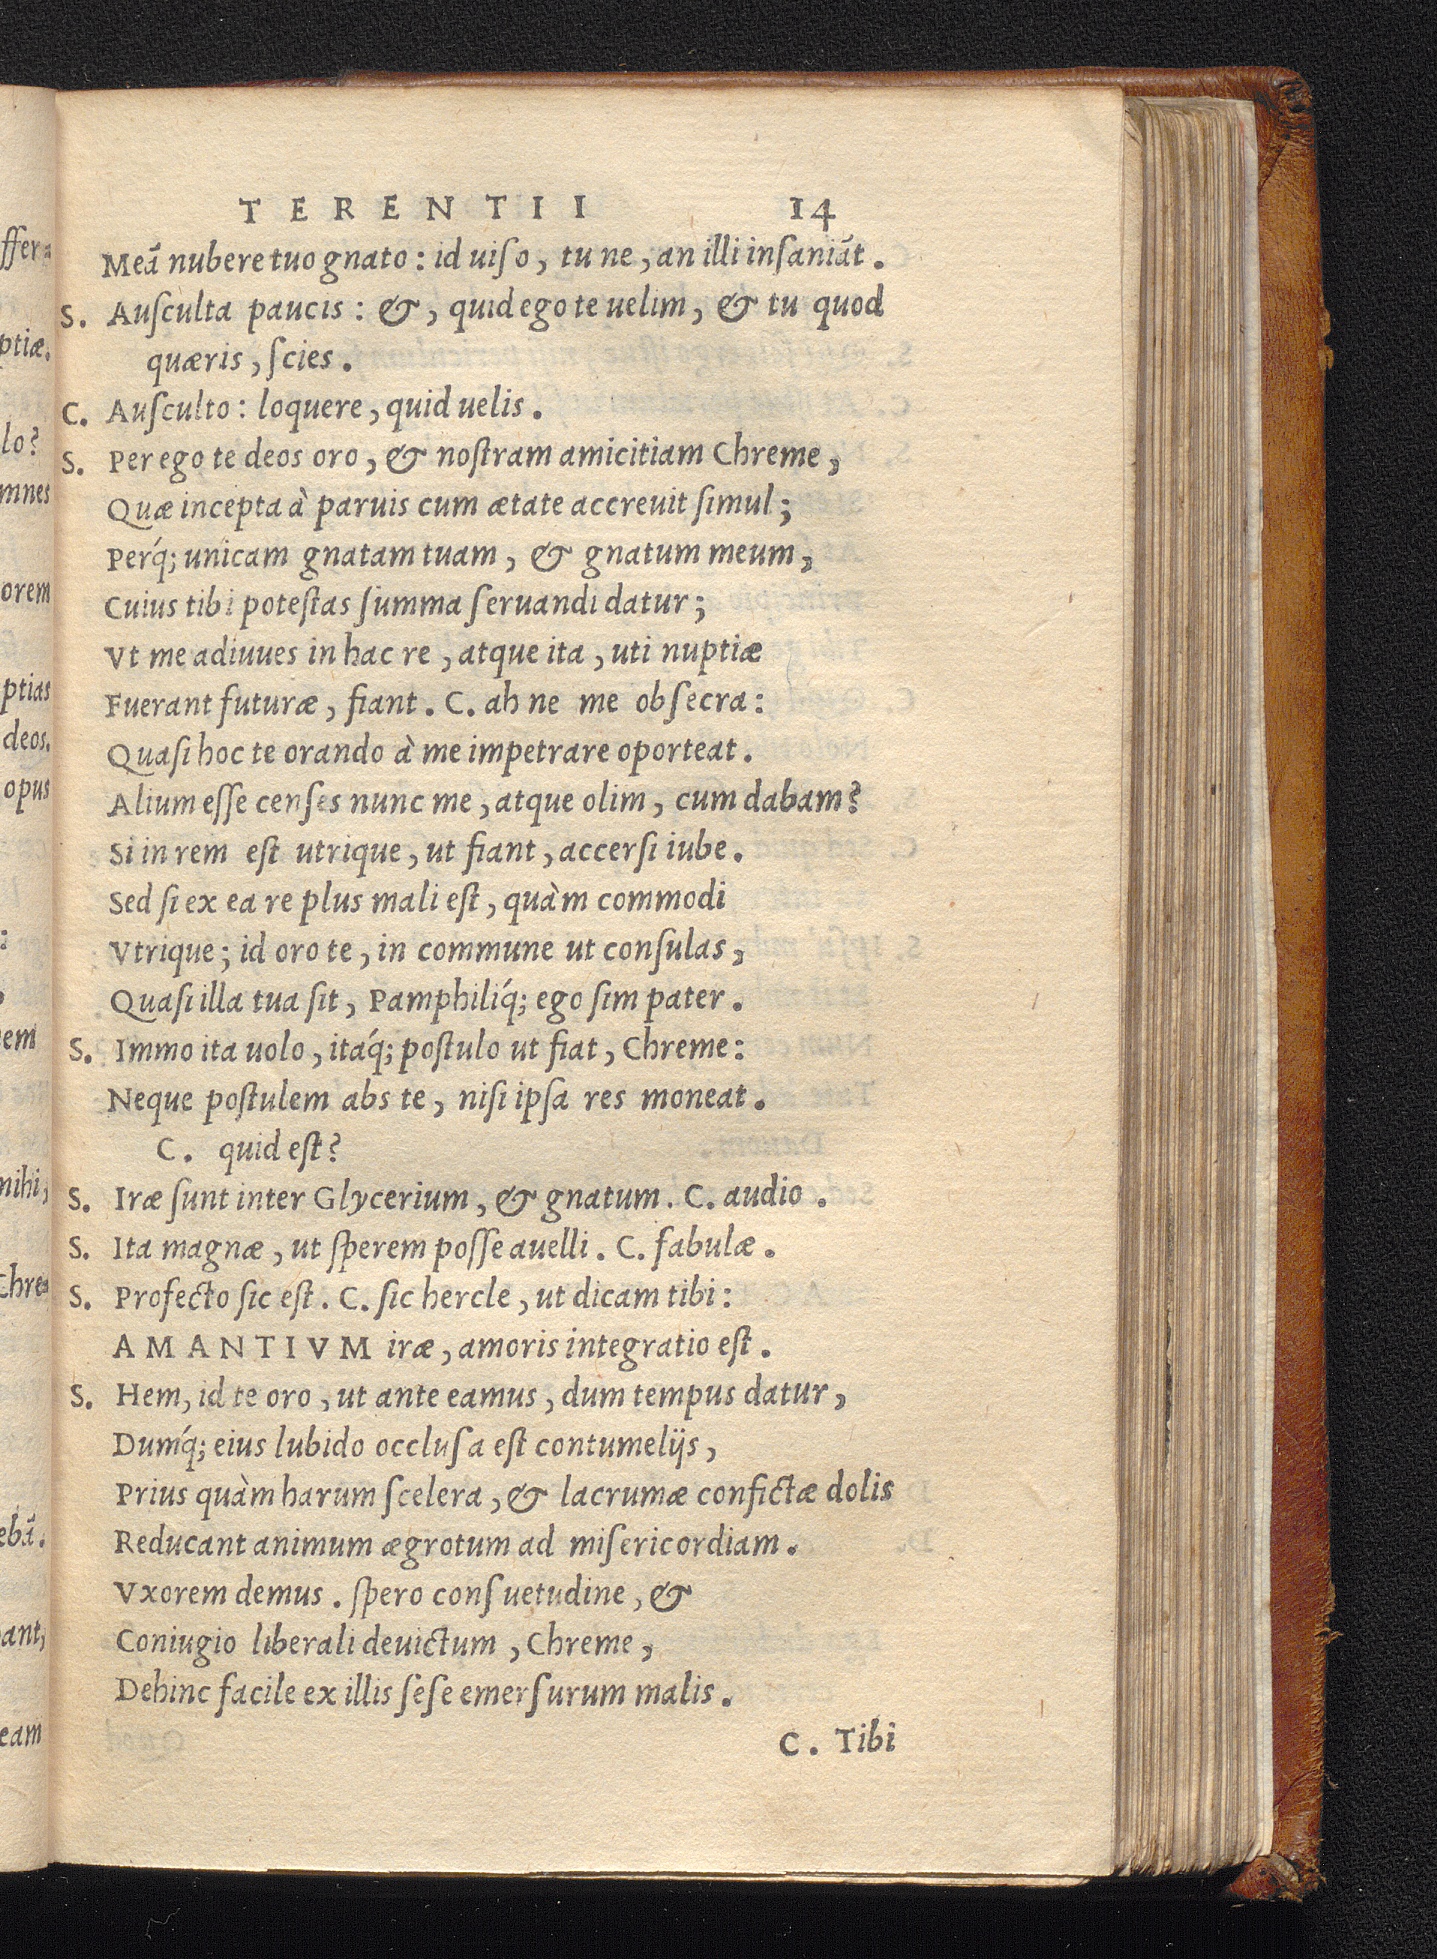 TERENTII 14
Meā nubere tuo gnato: id uiſo, tu ne, an illi inſaniāt.
S. Auſculta paucis: &, quid ego te uelim, & tu quod
quæris, ſcies.
C. Auſculto: loquere, quid uelis.
S. Per ego te deos oro, & noſtram amicitiam Chreme,
Quæ incepta à paruis cum ætate accreuit ſimul;
Perq́; unicam gnatam tuam, & gnatum meum,
Cuius tibi poteſtas ſumma ſeruandi datur;
Vt me adiuues in hac re, atque ita, uti nuptiæ
Fuerant futuræ, fiant. C. ah ne me obſecra:
Quaſi hoc te orando à me impetrare oporteat.
Alium eſſe cenſes nunc me, atque olim, cum dabam?
Si in rem eſt utrique, ut fiant, accerſi iube.
Sed ſi ex ea re plus mali eſt, quàm commodi
Vtrique; id oro te, in commune ut conſulas,
Quaſi illa tua ſit, Pamphiliq́; ego ſim pater.
S. Immo ita uolo, itaq́; poſtulo ut fiat, Chreme:
Neque poſtulem abs te, niſi ipſa res moneat.
C. quid eſt?
S. Iræ ſunt inter Glycerium, & gnatum. C. audio.
S. Ita magnæ, ut ſperem poſſe auelli. C. fabulæ.
S. Profecto ſic eſt. C. ſic hercle, ut dicam tibi:
AMANTIVM iræ, amoris integratio eſt.
S. Hem, id te oro, ut ante eamus, dum tempus datur,
Dumq́; eius lubido occluſa eſt contumelijs,
Prius quàm harum ſcelera, & lacrumæ confictæ dolis
Reducant animum ægrotum ad miſericordiam.
Vxorem demus. ſpero conſuetudine, &
Coniugio liberali deuictum, Chreme,
Dehinc facile ex illis ſeſe emerſurum malis.
C. Tibi